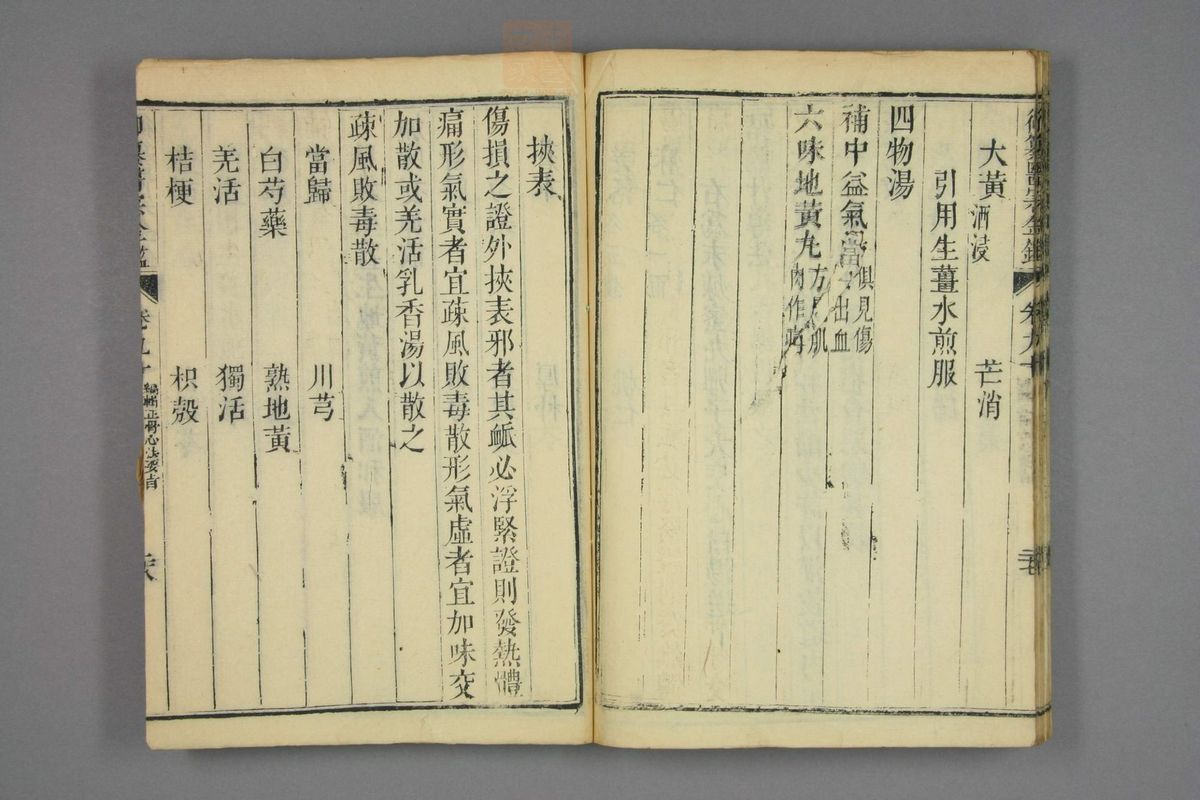 大黃酒浸　芒消
引用生薑水煎服
四物湯
補中益氣當
俱見傷
出血
六味地黃丸
方見肌
肉作痛
挾表
傷損之證外挾表邪者其脈必浮緊證則發熱體
痛形氣實者宜疎風敗毒散形氣虛者宜加味交
加散或羌活乳香湯以散之
疎風敗毒散
當歸　川芎
白芍藥　熟地黃
羌活　獨活
桔梗　枳殼
卷九十
編輯正骨心法要旨